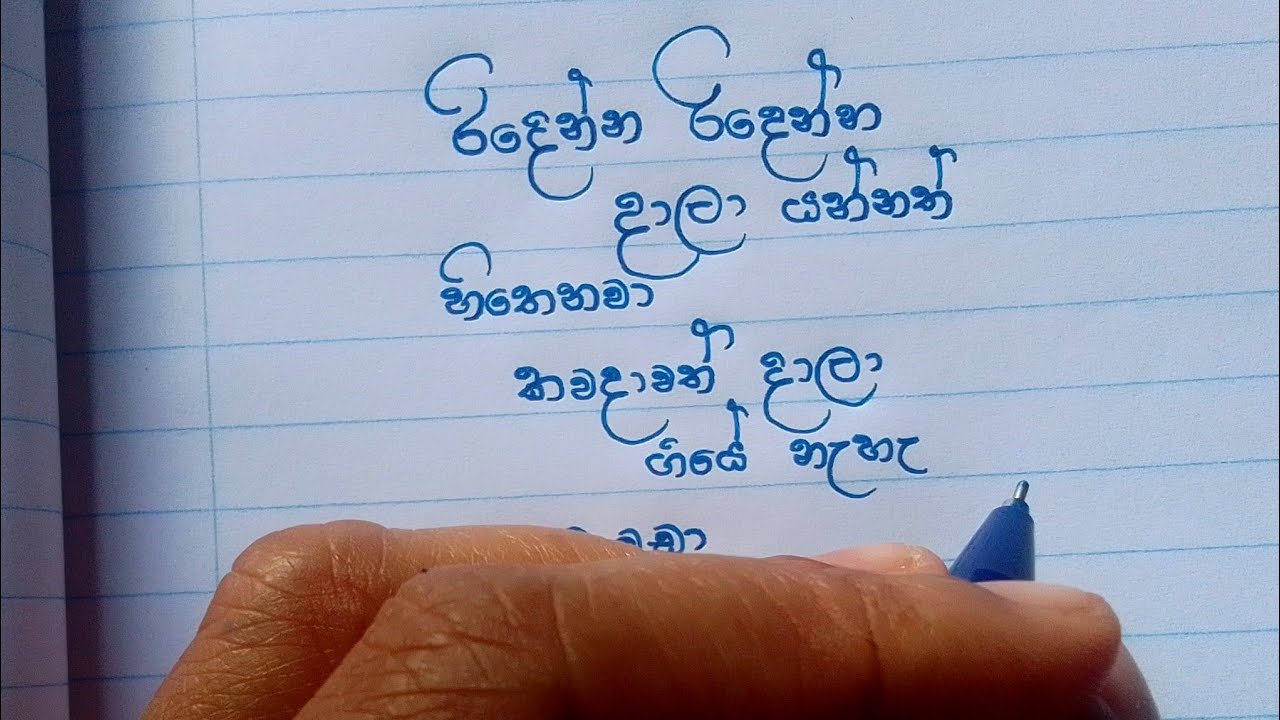 රිදෙන්න රිදෙන්න
දාලා යන්නත්
හිතෙනවා
කවදාවත් දාලා
ගියේ නැහැ